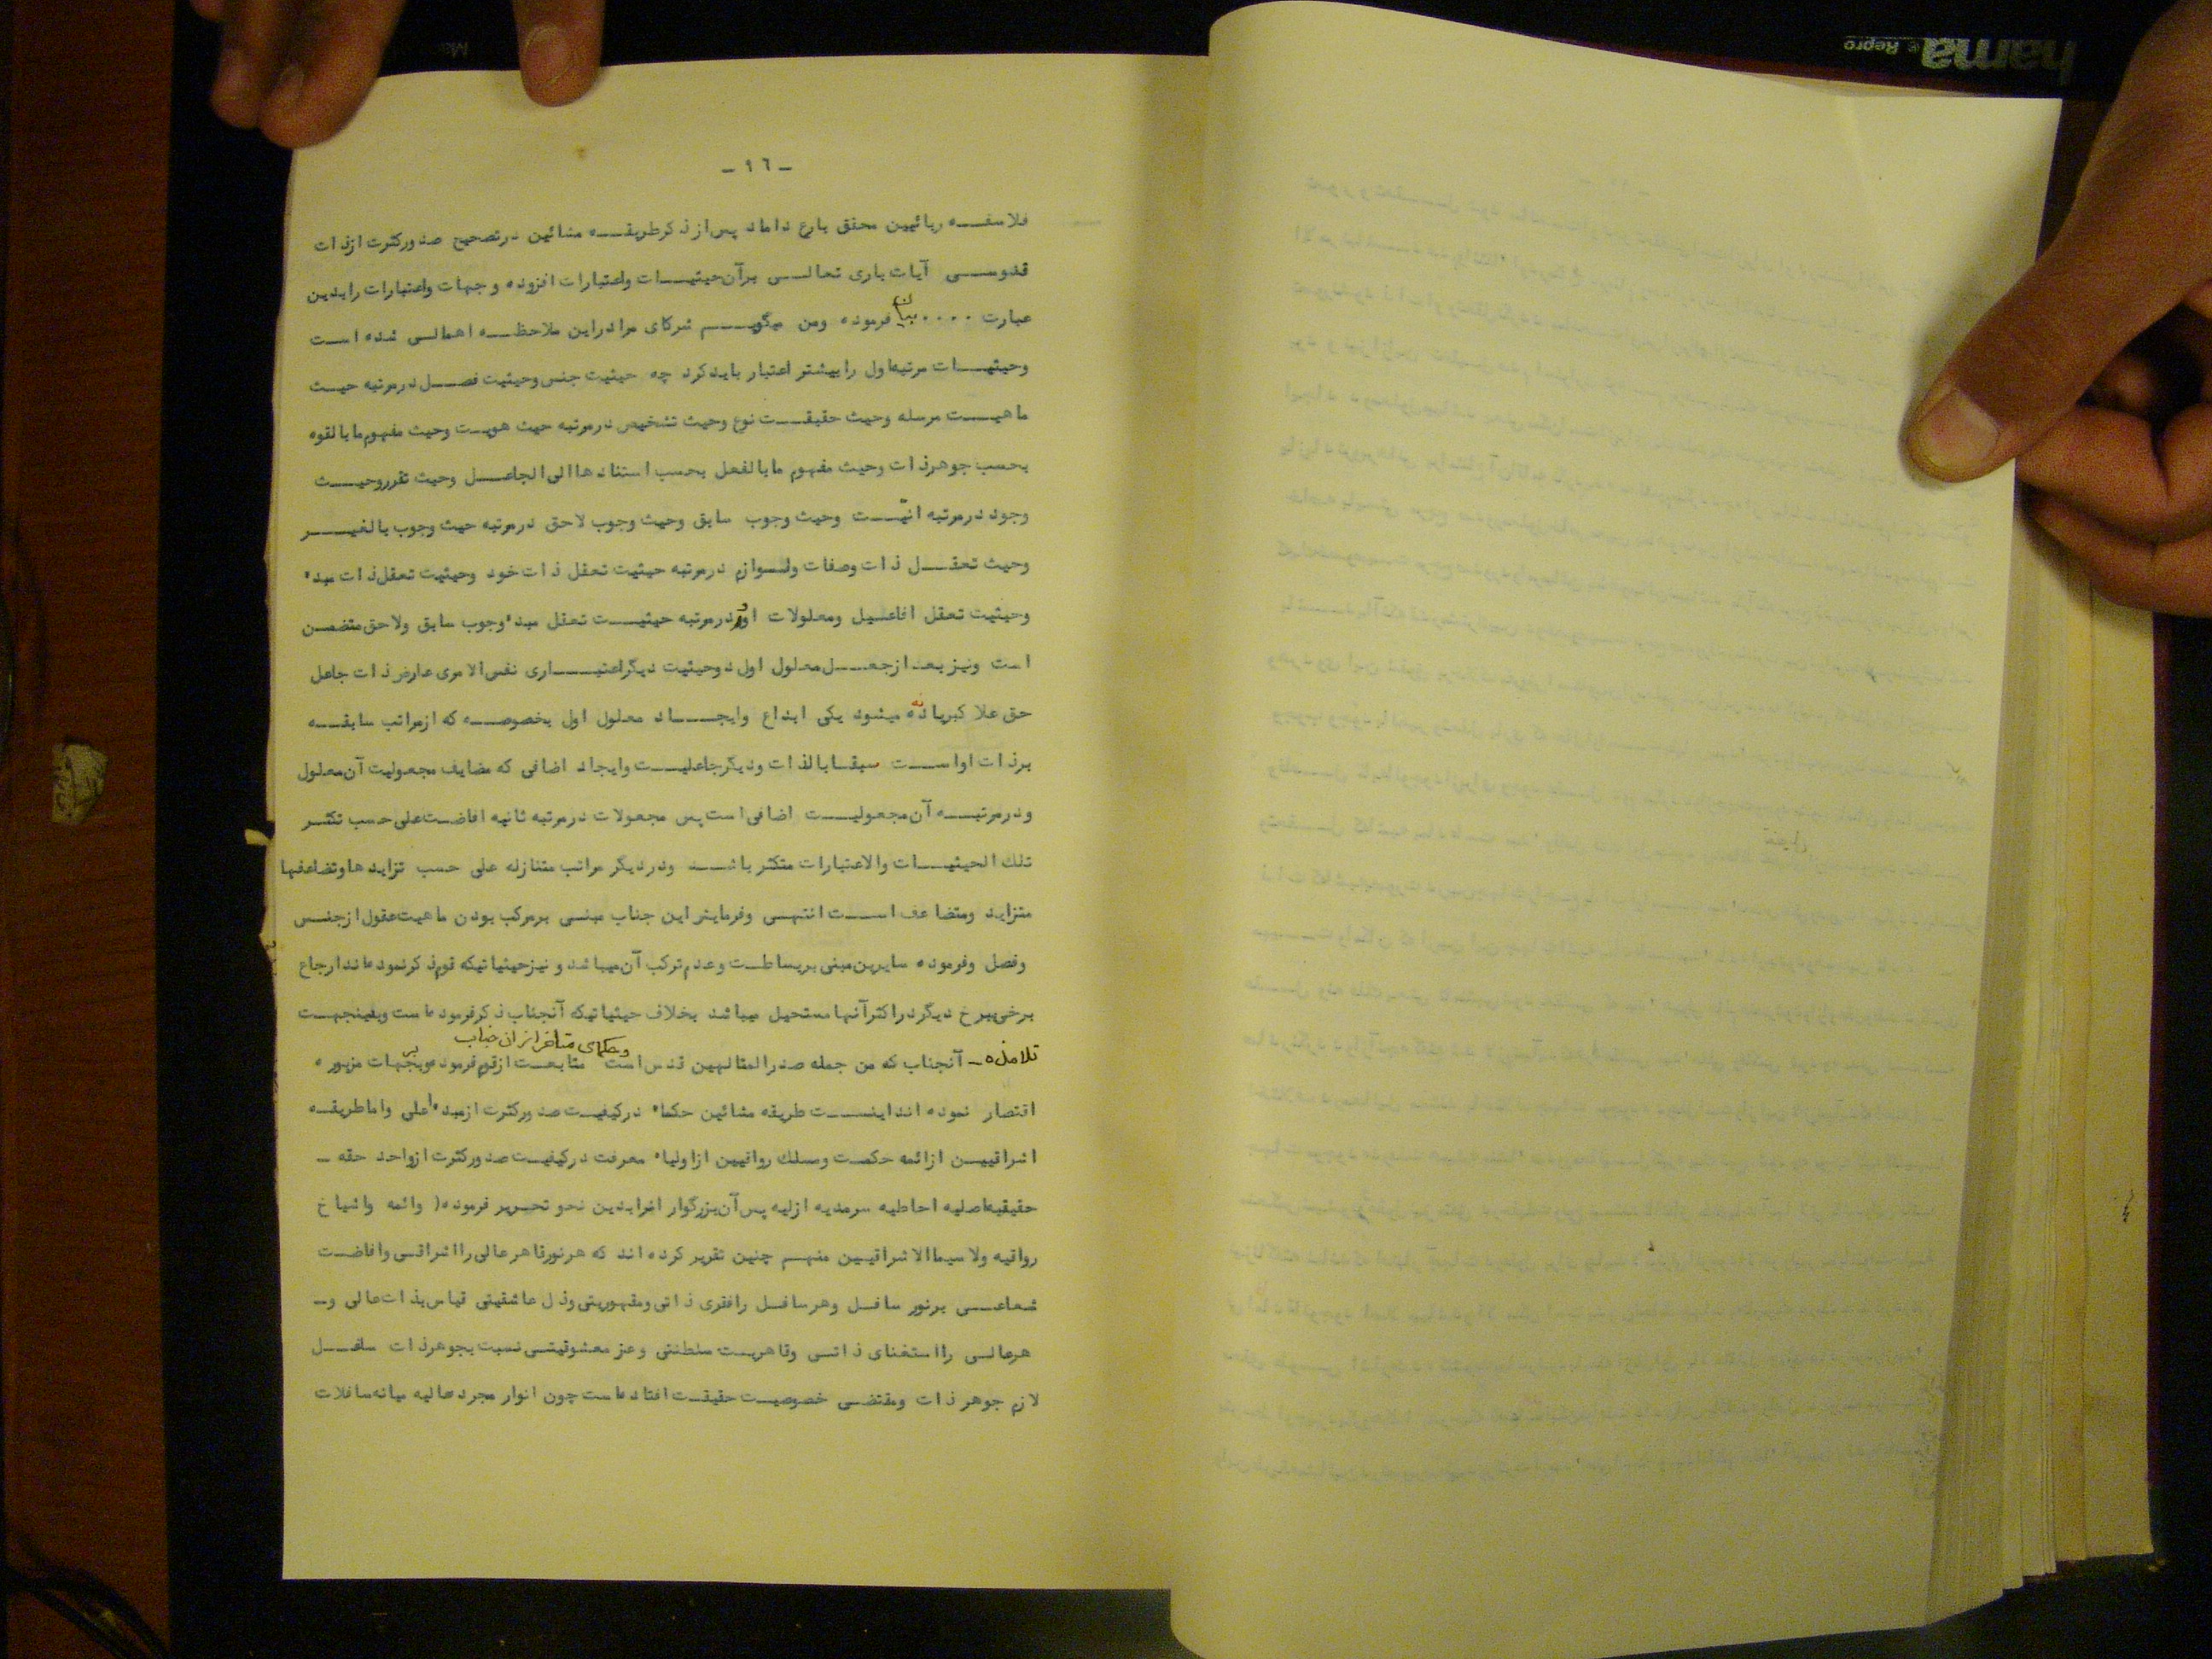 - ١٦ -
فلاسفه ربانیین محقق بارع داماد پس از ذکر طریقه مشائین در تصحیح صدور کثرت از ذات
قدوسی آیات باری تعالی بر آن حیثیات واعتبارات افزوده و جهات واعتبارات را بدین
عبارت .... بیان فرموده ومن میگویم شرکای مرا در این ملاحظه اهمالی شده است
وحیثیات مرتبه اول را بیشتر اعتبار باید کرد چه حیثیت جنس وحیثیت فصل در مرتبه حیث
ماهیت مرسله وحیث حقیقت نوع وحیث تشخیص در مرتبه حیث هویت وحیث مفهوم ما بالقوه
بحسب جوهر ذات وحیث مفهوم ما بالفعل بحسب استنادها الی الجاعل وحیث تقرر وحیث
وجود در مرتبه انیّت وحیث وجوب سابق وحیث وجوب لاحق در مرتبه حیث وجوب بالغیر
وحیث تعقل ذات وصفات ولوازم در مرتبه حیثیت تعقل ذات خود وحیثیت تعقل ذات مبدء
وحیثیت تعقل افاعیل ومعلولات او در مرتبه حیثیت تعقل مبدء وجوب سابق ولاحق متضمن
است ونیز بعد از جعل معلول اول دو حیثیت دیگر اعتباری نفس الامری عارض ذات جاعل
حق علا کبریائه میشود یکی ابداع وایجاد معلول اول بخصوصه که از مراتب سابقه
بر ذات او است سبقا بالذات ودیگر جاعلیت وایجاد اضافی که مضایف مجعولیت آن معلول
ودر مرتبه آن مجعولیت اضافی است پس مجعولات در مرتبه ثانیه افاضت علی حسب تکثر
تلك الحیثیات والاعتبارات متکثر باشند ودر دیگر مراتب متنازله علی حسب تزایدها وتضاعفها
متزاید ومتضاعف است انتهی وفرمایش این جناب مبنی بر مرکب بودن ماهیت عقول از جنس
وفصل وفرموده سایرین مبنی بر بساطت وعدم ترکب آن میباشد و نیز حیثیاتیکه قوم ذکر نموده اند ارجاع
برخی ببرخ دیگر در اکثر آنها مستحیل میباشد بخلاف حیثیاتیکه آنجناب ذکر فرموده است وبدینجهت
تلامذه - آنجناب که من جمله صدر المتالهین قدس است وحکمای متاخر از آن جناب متابعت از قوم فرموده وبر بجهات مزبوره
اقتصار نموده اند اینست طریقه مشائین حکماء در کیفیت صدور کثرت از مبدء اعلی واما طریقه
اشراقیین از ائمه حکمت ومسلك رواقیین از اولیاء معرفت در کیفیت صدور کثرت از واحد حقه -
حقیقیه اصلیه احاطیه سرمدیه ازلیه پس آن بزرگوار انرا بدین نحو تحریر فرموده ( وائمه واشیاخ
رواقیه ولا سیما الاشراقیین منهم چنین تقریر کرده اند که هر نور قاهر عالی را اشراقی وافاضت
شعاعی بر نور سافل وهر سافل را فقری ذاتی ومقهوریتی وذل عاشقیتی قیاس بذات عالی و-
هر عالی را استغنای ذاتی وقاهریت سلطنتی وعز معشوقیتی نسبت بجوهر ذات سافل
لازم جوهر ذات ومقتضی خصوصیت حقیقت افتاده است چون انوار مجرده عالیه میانه سافلات
hama
Repro